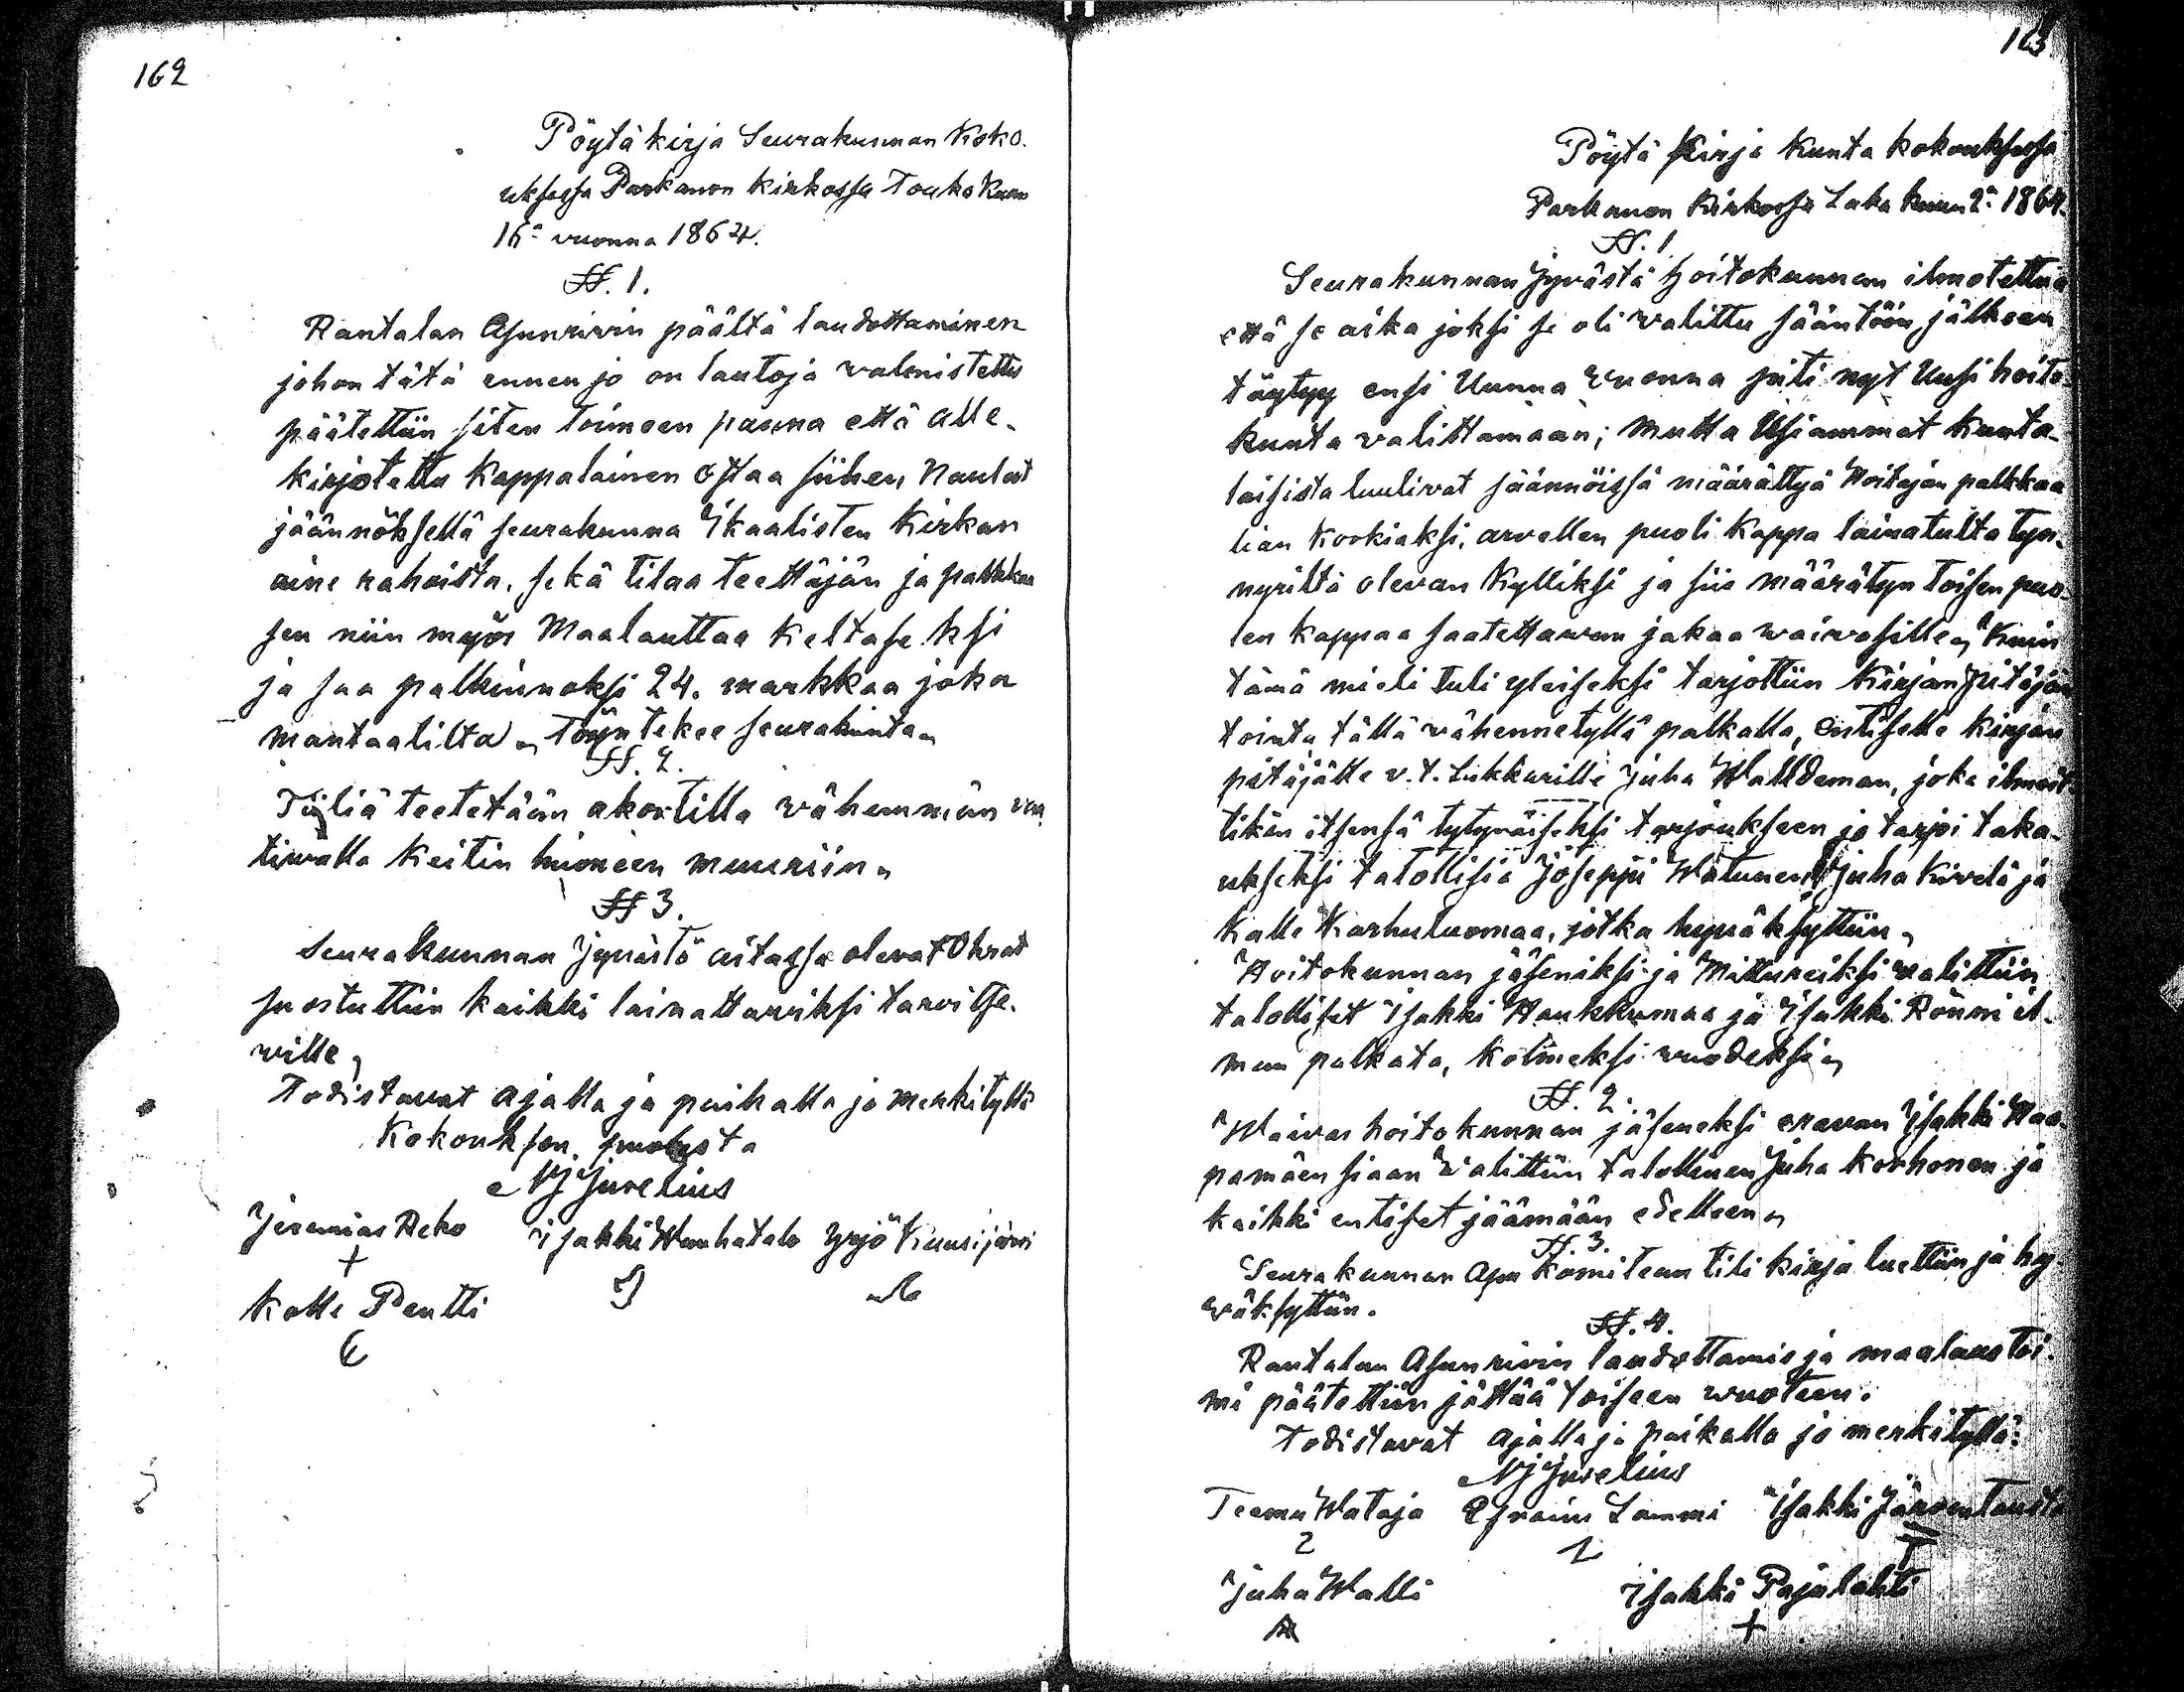 162
Pöytäkirja Seurakunnan Koko-
uksessa Parkanon kirkossa Touko Kuun
16ª vuonna 1864.
§§. 1.
Rantalan Asunrivin päältä laudottaminen
johon tätä ennen jo on lautoja valmistettu
päätettiin siten toimeen panna että alle-
kirjotettu Kappalainen ostaa siihen Naulat
jäännöksellä seurakunna Ikaalisten Kirkan
aine rahoista, sekä tilaa teettäjän ja palkkaa
sen niin myös Maalauttaa Keltase ksi
ja saa palkinnoksi 24. markkaa joka
mantaalilta. Työn tekee seurakunta.
§§. 2.
Tiiliä teetetään akortilla vähemmän
tiwalla Keitin huoneen muuriin.
§§ 3.
Seurakunnan Jyvästö aitassa olevat Ohrat
suostuttiin kaikki lainattaviksi tarvitse-
wille,
Todistavat ajalla ja paikalla jo merkityllä
Kokouksen puolesta
NJ Juselius
Jeremias Reko Isakki Wanhatalo Yrjö Kuusijärvi
+
Kalle Pentti
163
Pöytä Kirja Kunta kokouksessa
Parkanon Kirkossa Loka kuun 2ª 1864.
§§. 1
Seurakunnan Jyvästö hoitokunnan ilmotettua
että se aika joksi se oli valittu sääntöön jälkeen
täytyy ensi Uunna Vuonna piti nyt Uusi hoito-
kunta valittamaan; mutta Usiammat kunta-
laisista luulivat säännöissä määrättyä Hoitajan palkkaa
lian Korkiaksi, arvellen puoli kappa lainatulta tyn-
nyriltä olevan Kylliksi ja siis määrätyn toisen puo-
len kappaa saatettawan jakaa waivasille, Kuin
tämä mieli tuli yleiseksi tarjottiin Kirjanpitäjän
tointa tällä vähennetyllä palkalla, Entiselle kirjan
pitäjälle v.t. Lukkarille Juha Walldeman, joka ilmoit-
tikin itsensä tytyväiseksi tarjoukseen ja tarjoi taka-
ukseksi talollisia Joseppi Watunen, Juha Kivelä ja
Kalle Karhuluomaa, jotka hyväksyttiin,
Hoitokunnan jäseniksi ja Mittureiksi valittiin
talolliset Isakki Haukkumaa ja Isakki Rönni il-
man palkata, kolmeksi vuodeksi,
§§. 2.
Waivas hoitokunnan jäseneksi eravan Isakki Haa-
pamäen siaan Valittiin talollinen Juha Korhonen ja
kaikki entiset jäämään edelleen,
§§. 3.
Seurakunnan Apu Komitean tili kirja luettiin ja hy-
wäksyttiin.
§§. 4.
Rantalan Asunrivin laudottamis ja maalaus toi-
mi päätettiin jättää toiseen vuoteen.
Todistavat ajalla ja paikalla jo merkityllä:
NJ Juselius
Teemu Wataja Efraim Lammi Isakki Järventausta
2
Juha Walli Isakki Pajulahti
+